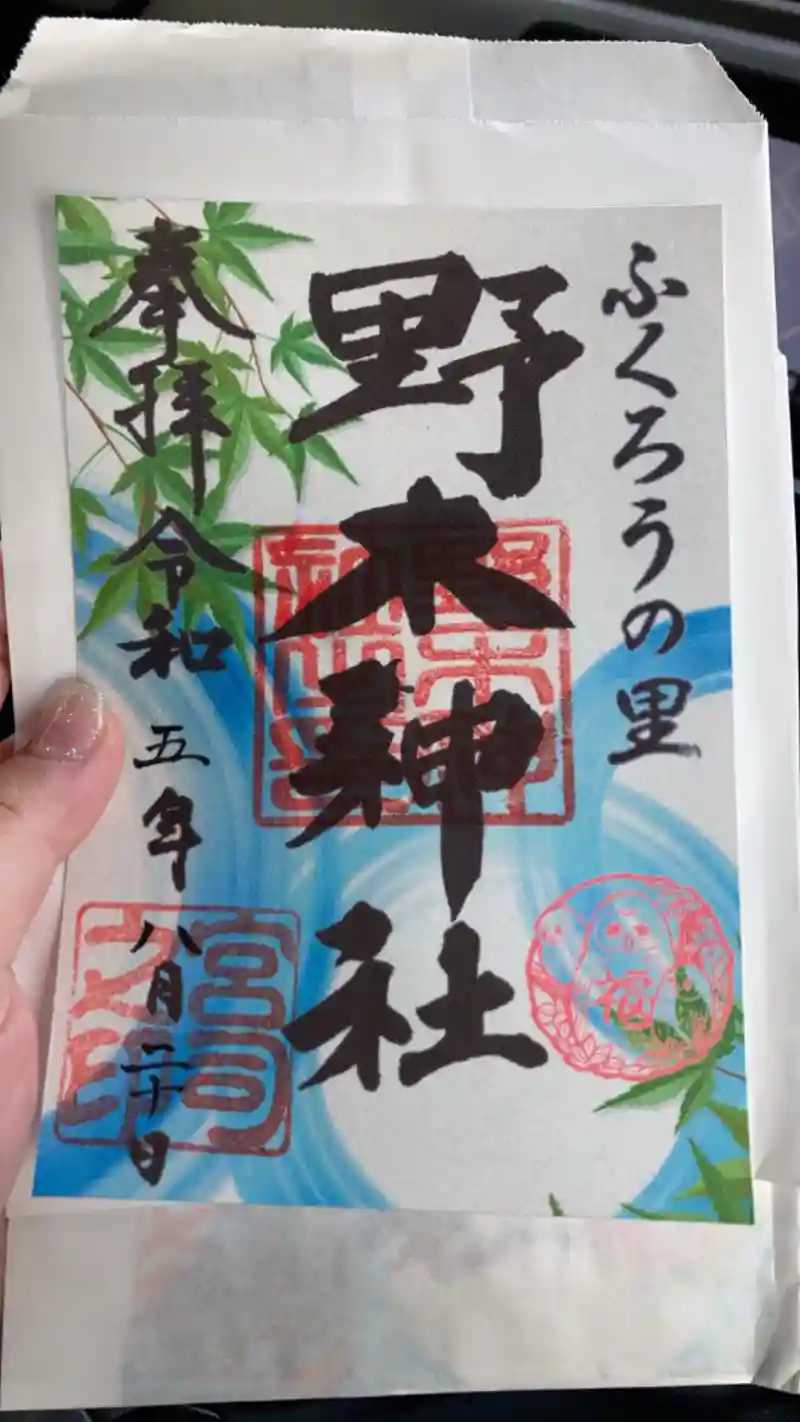 ふくろうの里
野木神社
奉拝 令和五年八月二十日
野木神社之印
福
宮司之印